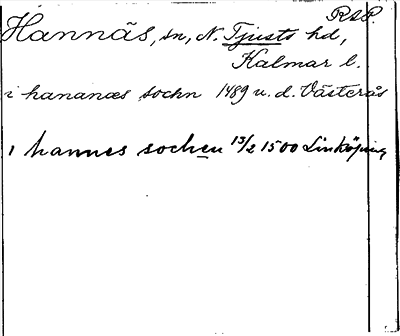 RAP.
Hannäs, sn, N. Tjusts hd,
Kalmar l.
i hananæs sochn 1489 u. d. Västerås
i hannes sochen 13/2 1500 Linköping